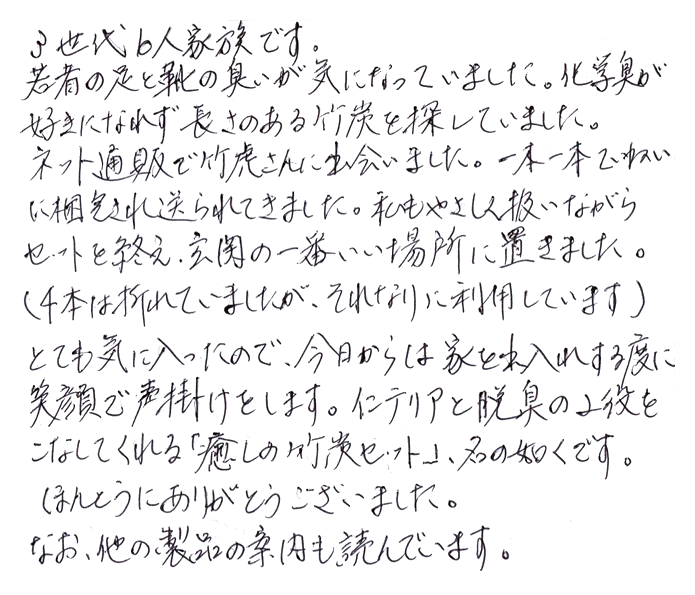 3世代6人家族です。
若者の足と靴の臭いが気になっていました。化学臭が
好きになれず長さのある竹炭を探していました。
ネット通販で竹虎さんに出会いました。一本一本ていねい
に梱包され送られてきました。私もやさしく扱いながら
セットを終え、玄関の一番いい場所に置きました。
(4本は折れていましたが、それなりに利用しています)
とても気に入ったので、今日からは家を出入れする度に
笑顔で声掛けをします。インテリアと脱臭の2役を
こなしてくれる「癒しの竹炭セット」、名の如くです。
ほんとうにありがとうございました。
なお、他の製品の案内も読んでいます。